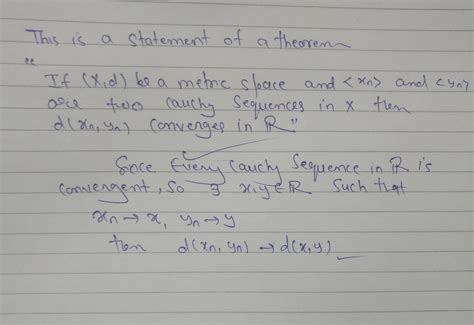 This is a statement of a theorem
"
If (X,d) be a metric space and <xn> and <yn>
are two Cauchy Sequences in X then
d(xn, yn) converges in R"
Since Every Cauchy Sequence in R is
convergent, so ∃ x,y∈R Such that
xn → x, yn → y
then d(xn, yn) → d(x,y)